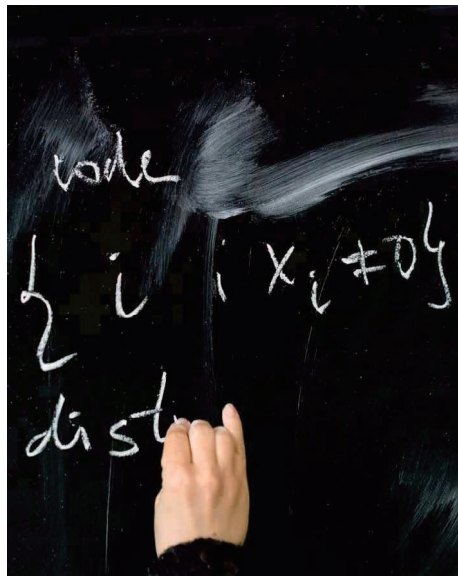 code
{ i ; x_i ≠ 0 }
dist